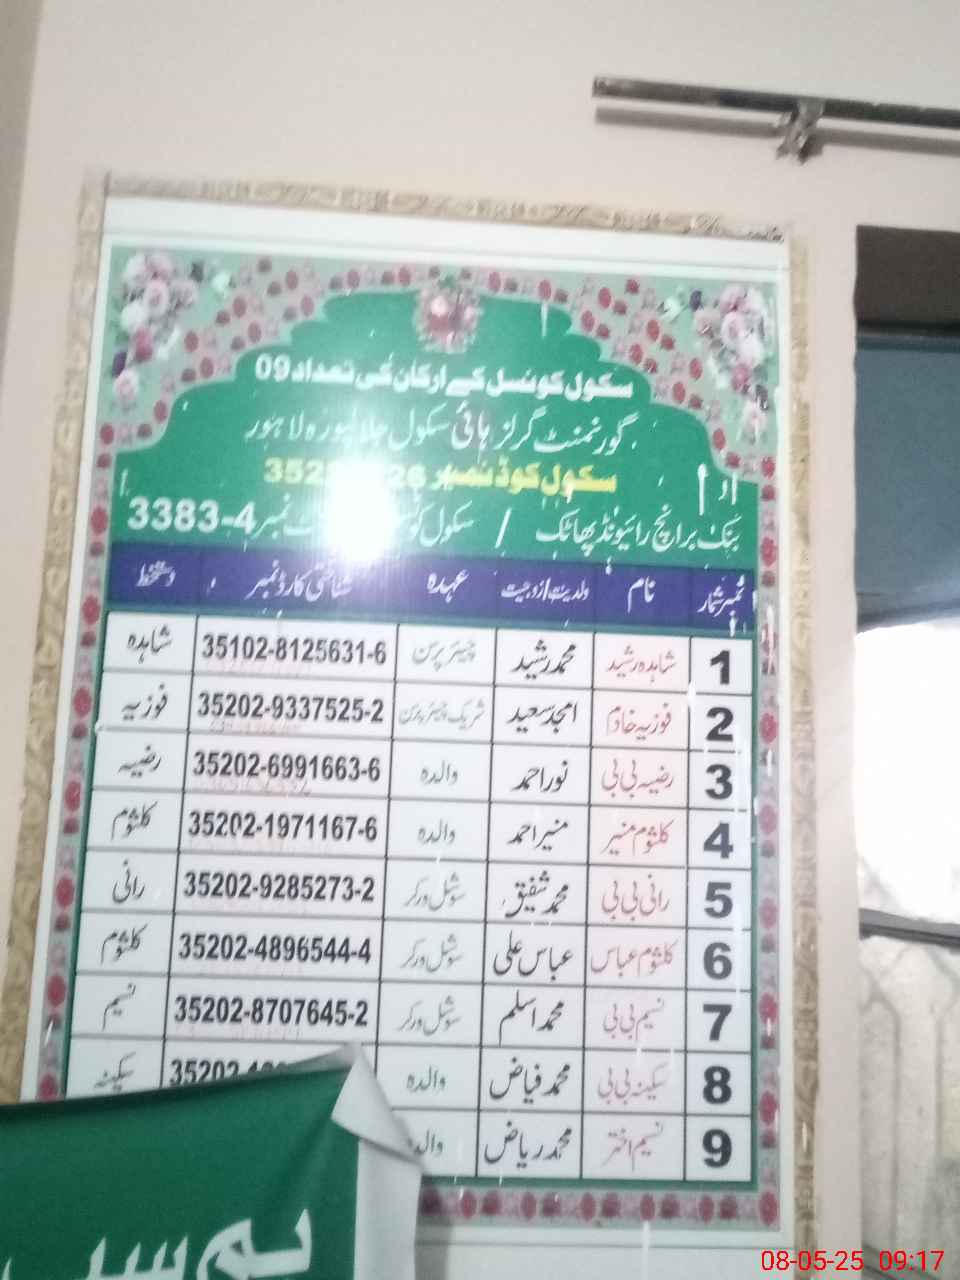 سکول کونسل کے ارکان کی تعداد 09
گورنمنٹ گرلز ہائی سکول جلالپورہ لاہور
سکول کوڈ نمبر
بنک برانچ رائیونڈ پھاٹک / سکول نمبر 3383-4
نمبر شمار نام ولدیت/زوجیت عہدہ شناختی کارڈ نمبر دستخط
1 شاہدہ رشید محمد رشید چیئر پرسن 35102-8125631-6 شاہدہ
2 فوزیہ خادم امجد سعید شریک چیئر پرسن 35202-9337525-2 فوزیہ
3 رضیہ بی بی نور احمد والدہ 35202-6991663-6 رضیہ
4 کلثوم منیر منیر احمد والدہ 35202-1971167-6 کلثوم
5 رانی بی بی محمد شفیق سوشل ورکر 35202-9285273-2 رانی
6 کلثوم عباس عباس علی سوشل ورکر 35202-4896544-4 کلثوم
7 نسیم بی بی محمد اسلم سوشل ورکر 35202-8707645-2 نسیم
8 سکینہ بی بی محمد فیاض والدہ 35202 سکینہ
9 نسیم اختر محمد ریاض
08-05-25 09:17